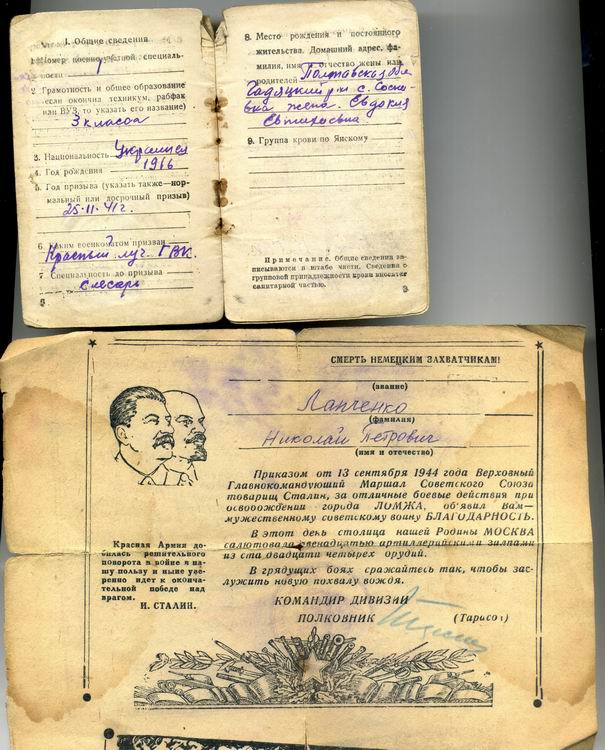 1. Общие сведения
1. Номер военно-учетной специаль-
ности 1
2. Грамотность и общее образование
(если окончил техникум, рабфак
или ВУЗ, то указать его название)
3 класса
3. Национальность Украинец
4. Год рождения
5. Год призыва (указать также—нор-
мальный или досрочный призыв)
25.11.41 г.
6. Каким военкоматом призван
Красный луч. ГВК.
7. Специальность до призыва
Слесарь
8. Место рождения и постоянного
жительства. Домашний адрес, фа-
милия, имя отчество жены или
родителей Полтавская обл
Гадяцкий р-н с.
жена. Евдокия
Евтихиевна
9. Группа крови по Янскому
Примечание. Общие сведения за-
писываются в штабе части. Сведения о
групповой принадлежности крови вносятся
санитарной частью.
СМЕРТЬ НЕМЕЦКИМ ЗАХВАТЧИКАМ!
(звание)
Лапченко
(фамилия)
Николай Петрович
(имя и отчество)
Приказом от 13 сентября 1944 года Верховный
Главнокомандующий Маршал Советского Союза
товарищ Сталин, за отличные боевые действия при
освобождении города ЛОМЖА, об'явил Вам—
мужественному советскому воину БЛАГОДАРНОСТЬ.
В этот день столица нашей Родины МОСКВА
салютовала двенадцатью артиллерийскими залпами
из ста двадцати четырех орудий.
В грядущих боях сражайтесь так, чтобы зас-
лужить новую похвалу вождя.
КОМАНДИР ДИВИЗИИ
ПОЛКОВНИК (Тарасов)
Красная Армия до-
билась решительного
поворота в войне в на-
шу пользу и ныне уве-
ренно идет к оконча-
тельной победе над
врагом.
И. СТАЛИН.